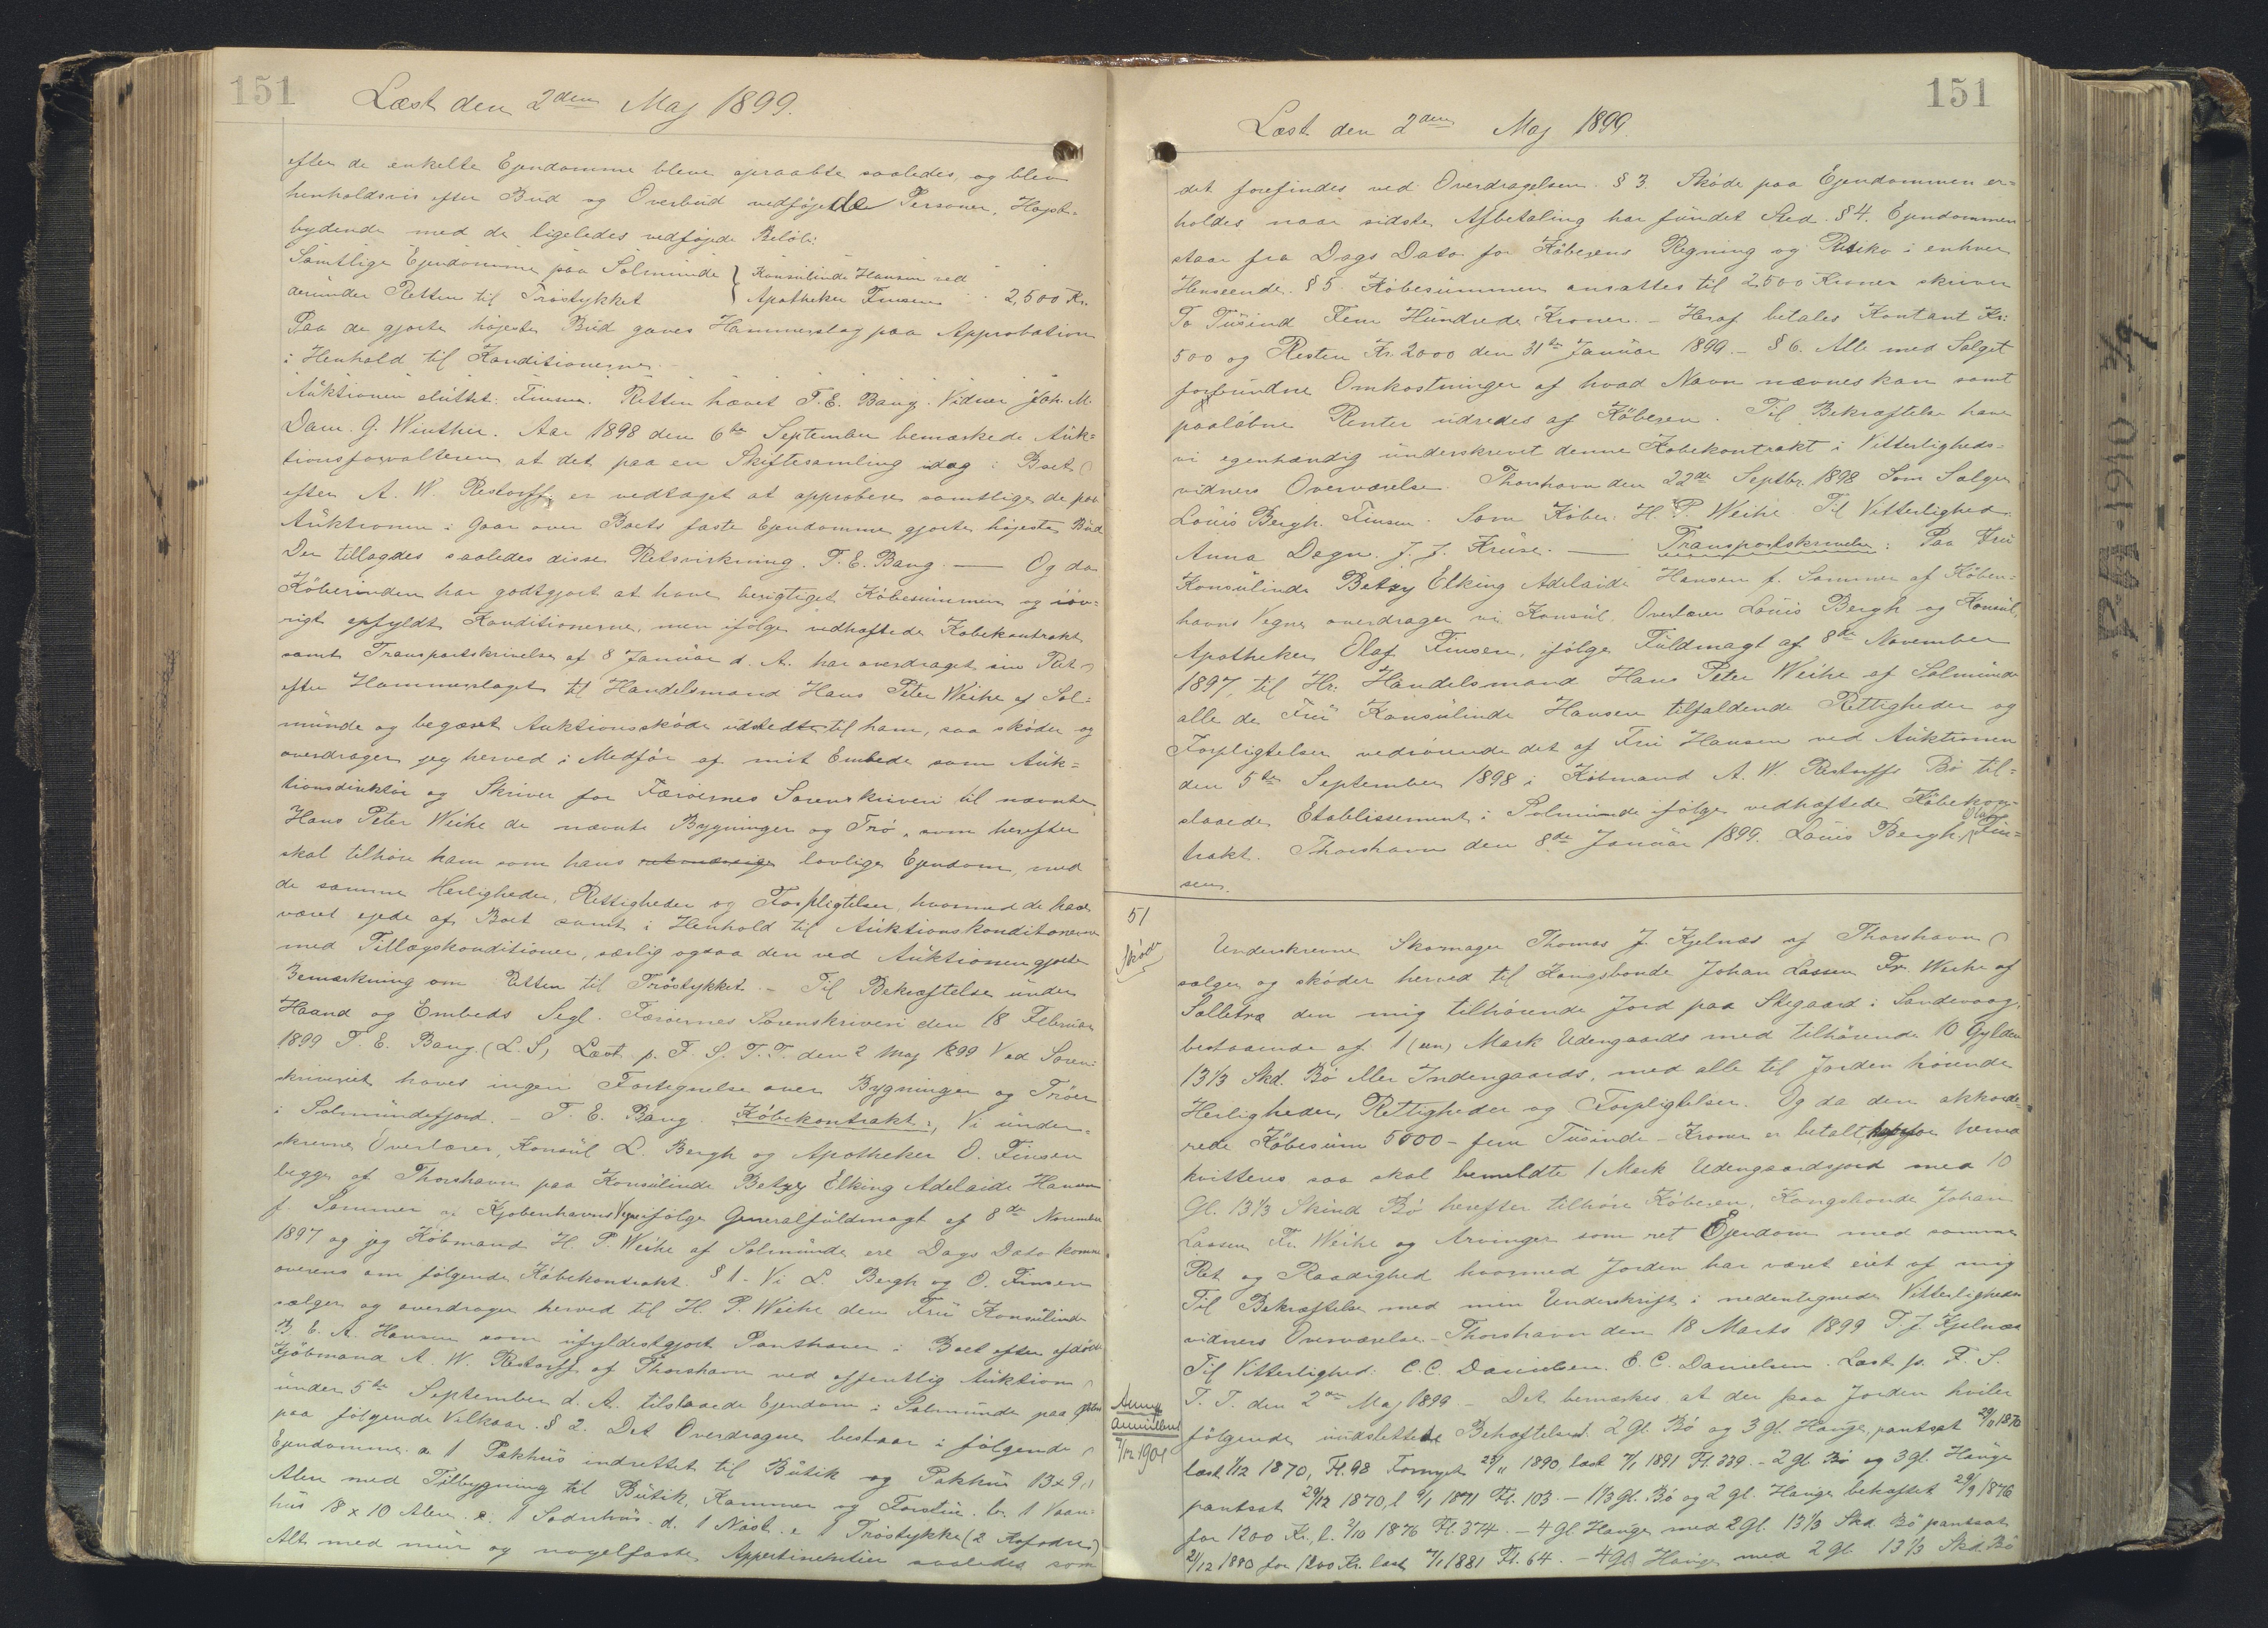 151
Læst den 2den Maj 1899.
efter de enkelte Ejendomme bleve opraabte saaledes, og blev
henholdsvis efter Bud og Overbud vedføjede Personer, Højst-
bydende med de ligeledes vedføjede Beløb:
Samtlige Ejendomme paa Solmunde } Konsulinde Hansen ved
derunder Retten til Trøstykket } Apotheker Finsen .. 2,500 Kr.
Paa de gjorte højeste Bud gaves Hammerslag paa Approbation
i Henhold til Konditionerne. -
Auktionen sluttet. Finsen. Retten hævet T. E. Bang. Vidner Joh. M.
Dam. G. Winther. Aar 1898 den 6te September bemærkede Auk-
tionsforvalteren at det paa en Skiftesamling idag i Boet
efter A. W. Restorff er vedtaget at approbere samtlige de paa
Auktionen i Gaar over Boets faste Ejendomme gjorte højeste Bud
Der tillagdes saaledes disse Retsvirkning. T. E. Bang. — Og da
Køberinden har godtgjort at have berigtiget Købesummen og iøv-
rigt opfyldt Konditionerne, men ifølge vedhæftede Købekontrakt
samt Transportskrivelse af 8 Januar d. A. har overdraget sin Ret
efter Hammerslaget til Handelsmand Hans Peter Weihe af Sol-
munde og begæret Auktionsskøde udstedt til ham, saa skøder og
overdrager jeg herved i Medfør af mit Embede som Auk-
tionsdirektør og Skriver for Færøernes Sorenskriveri til nævnte
Hans Peter Weihe de nævnte Bygninger og Trø, som herefter
skal tilhøre ham som hans retmæssige lovlige Ejendom, med
de samme Herligheder, Rettigheder og Forpligtelser, hvormed de have
været ejede af Boet samt i Henhold til Auktionskonditionerne
med Tillægskonditioner, særlig ogsaa den ved Auktionen gjorte
Bemærkning om Retten til Trøstykket. - Til Bekræftelse under
Haand og Embeds Segl. Færøernes Sorenskriveri den 18 Februar
1899 T. E. Bang. (L. S) Læst p. F. S. T. T. den 2 Maj 1899 Ved Soren-
skriveriet haves ingen Fortegnelse over Bygninger og Trøer
i Solmundefjord. - T. E. Bang. Købekontrakt:, Vi under-
skrevne Overlærer, Konsul L. Bergh og Apotheker O. Finsen
begge af Thorshavn paa Konsulinde Betzy Elking Adelaide Hansen
f. Sommer af Kjøbenhavns Vegne ifølge Generalfuldmagt af 8de November
1897 og jeg Købmand H. P. Weihe af Solmunde ere Dags Dato komne
overens om følgende Købekontrakt. § 1. Vi L. Bergh og O. Finsen
sælger og overdrager herved til H. P. Weihe den Fru Konsulinde
B. E. A. Hansen som ufyldestgjort Panthaver i Boet efter afdøde
Kjøbmand A. W. Restorff af Thorshavn ved offentlig Auktion
under 5te September d. A. tilslaaede Ejendom i Solmunde paa
paa følgende Vilkaar. § 2. Det Overdragne bestaar i følgende
Ejendomme. a 1 Pakhus indrettet til Butik og Pakhus 13 x 9
Alen med Tilbygning til Butik, Kammer og Forstue. b. 1 Vaan-
hus 18 x 10 Alen. c. 1 Sodnhus. d. 1 Nøst. e 1 Trøstykke (2
Alt med mur og nagelfaste Appertinentier saaledes som
151
Læst den 2den Maj 1899.
det forefindes ved Overdragelsen. § 3. Skøde paa Ejendommen er-
holdes naar sidste Afbetaling har fundet Sted. § 4. Ejendommen
staar fra Dags Dato for Køberens Regning og Risiko i enhver
Henseende. § 5. Købesummen ansættes til 2500 Kroner skriver
To Tusind Fem Hundrede Kroner. - Heraf betales Kontant Kr:
500 og Resten Kr. 2000 den 31te Januar 1899. - § 6. Alle med Salget
forbundne Omkostninger af hvad Navn nævnes kan samt
paaløbne Renter udredes af Køberen. Til Bekræftelse have
vi egenhændig underskrevet denne Købekontrakt i Vitterligheds-
vidners Overværelse. Thorshavn den 22de Septbr. 1898 Som Sælger
Louis Bergh. Finsen. Som Køber: H. P. Weihe. Til Vitterlighed:
Anna Degn. J. J. Kruse. — Transportskrivelse: Paa Fru
Konsulinde Betzy Elking Adelaide Hansen f. Sommer af Køben-
havns Vegne overdrager vi Konsul, Overlærer Louis Bergh og Konsul,
Apotheker Olaf Finsen, ifølge Fuldmagt af 8de November
1897, til Hr. Handelsmand Hans Peter Weihe af Solmunde
alle de Fru Konsulinde Hansen tilfaldende Rettigheder og
Forpligtelser vedrørende det af Fru Hansen ved Auktionen
den 5te September 1898 i Købmand A. W. Restorffs Bo til-
slaaede Etablissement i Solmunde ifølge vedhæftede Købekon-
trakt. Thorshavn den 8de Januar 1899. Louis Bergh. Olaf Fin-
sen.
51
Skøde
Underskrevne Skomager Thomas J. Kjelnæs af Thorshavn
sælger og skøder herved til Kongsbonde Johan Lassen Fr. Weihe af
Selletræ den mig tilhørende Jord paa Skegaard i Sandevaag,
bestaaende af 1 (een) Mark Udengaards med tilhørende 10 Gylden
13 1/3 Skd. Bø eller Indengaards, med alle til Jorden hørende
Herligheder, Rettigheder og Forpligtelser. Og da den akkorde-
rede Købesum 5000 - fem Tusinde - Kroner er betalt, herfor herved
kvitteres, saa skal bemeldte 1 Mark Udengaardsjord med 10
Gl. 13 1/3 Skind Bø herefter tilhøre Køberen, Kongsbonde Johan
Lassen Fr. Weihe og Arvinger som ret Ejendom med samme
Ret og Raadighed hvormed Jorden har været eiet af mig
Til Bekræftelse med min Underskrift i nedentegnede Vitterligheds
vidners Overværelse. - Thorshavn den 18 Marts 1899 T. J. Kjelnæs
Til Vitterlighed: C. C. Danielsen. E. C. Danielsen. Læst p. F. S.
T. T. den 2den Maj 1899 - Det bemærkes at der paa Jorden hviler
Anm.
annulleret
7/12 1904
følgende uudslettede Behæftelser: 2 Gl. Bø og 3 gl. Hauge, pantsat 29/11 1870
læst 1/12 1870, Fl. 98 Fornyet 25/11 1890, læst 7/1 1891 Fl. 339. - 2 gl. Bø og 3 gl. Hauge
pantsat 29/12 1870, l 6/1 1871 Fl. 103. - 1 1/3 gl. Bø og 2 gl. Hauge behæftet 29/9 1876
for 1200 Kr, l. 2/10 1876 Fl. 374. - 4 gl. Hauge med 2 gl. 13 1/3 Skd. Bø pantsat
21/12 1880 for 1200 Kr. læst 7/1 1881 Fl. 64. - 4 gl. Hauge med 2 gl. 13 1/3 Skd. Bø